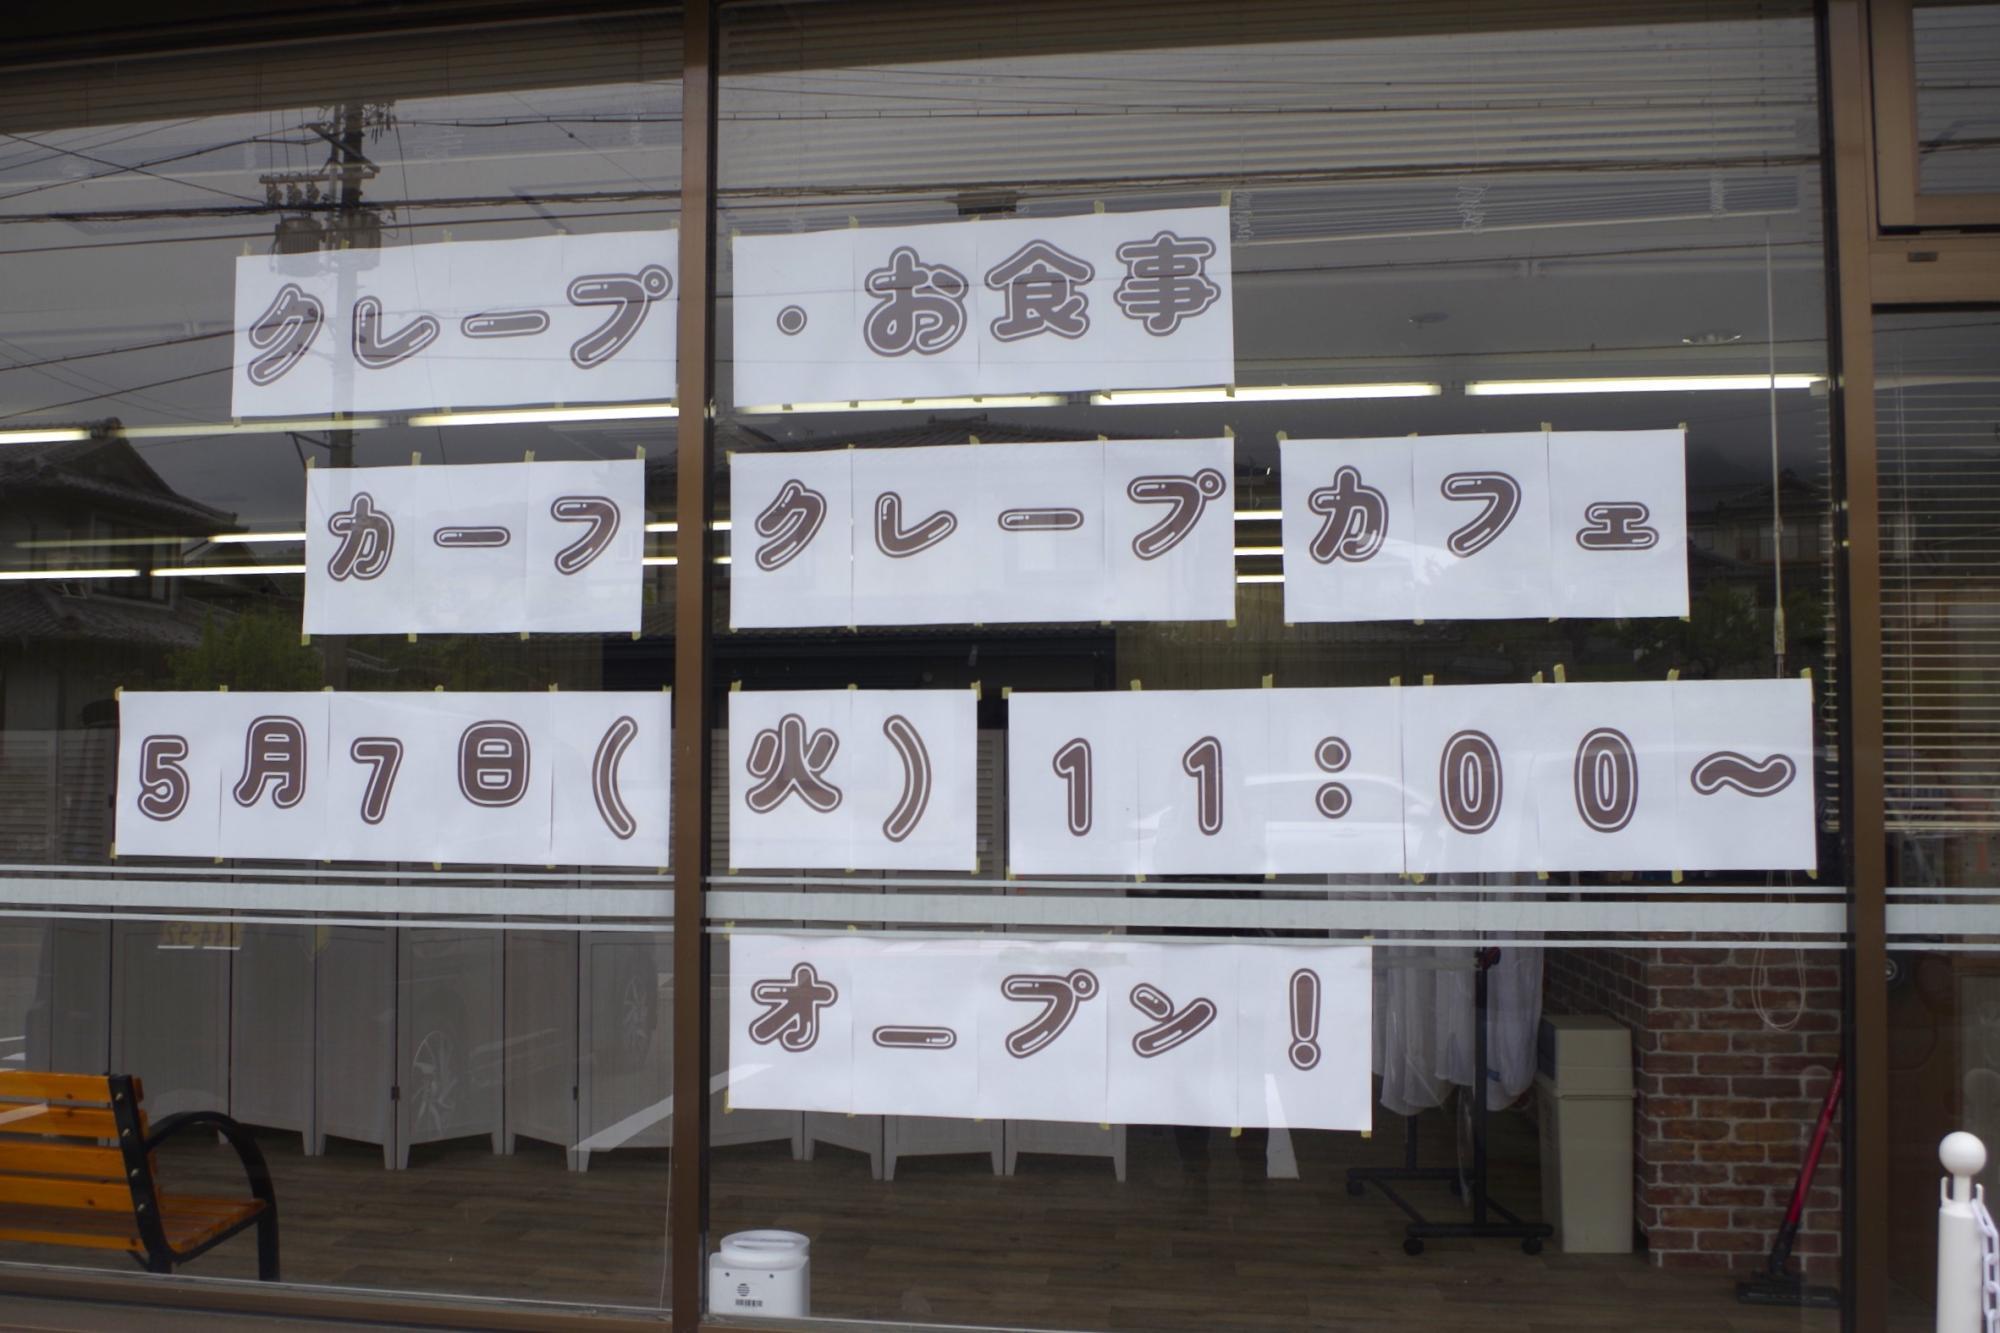 クレープ・お食事
カーフクレープカフェ
5月7日(火)11:00〜
オープン!